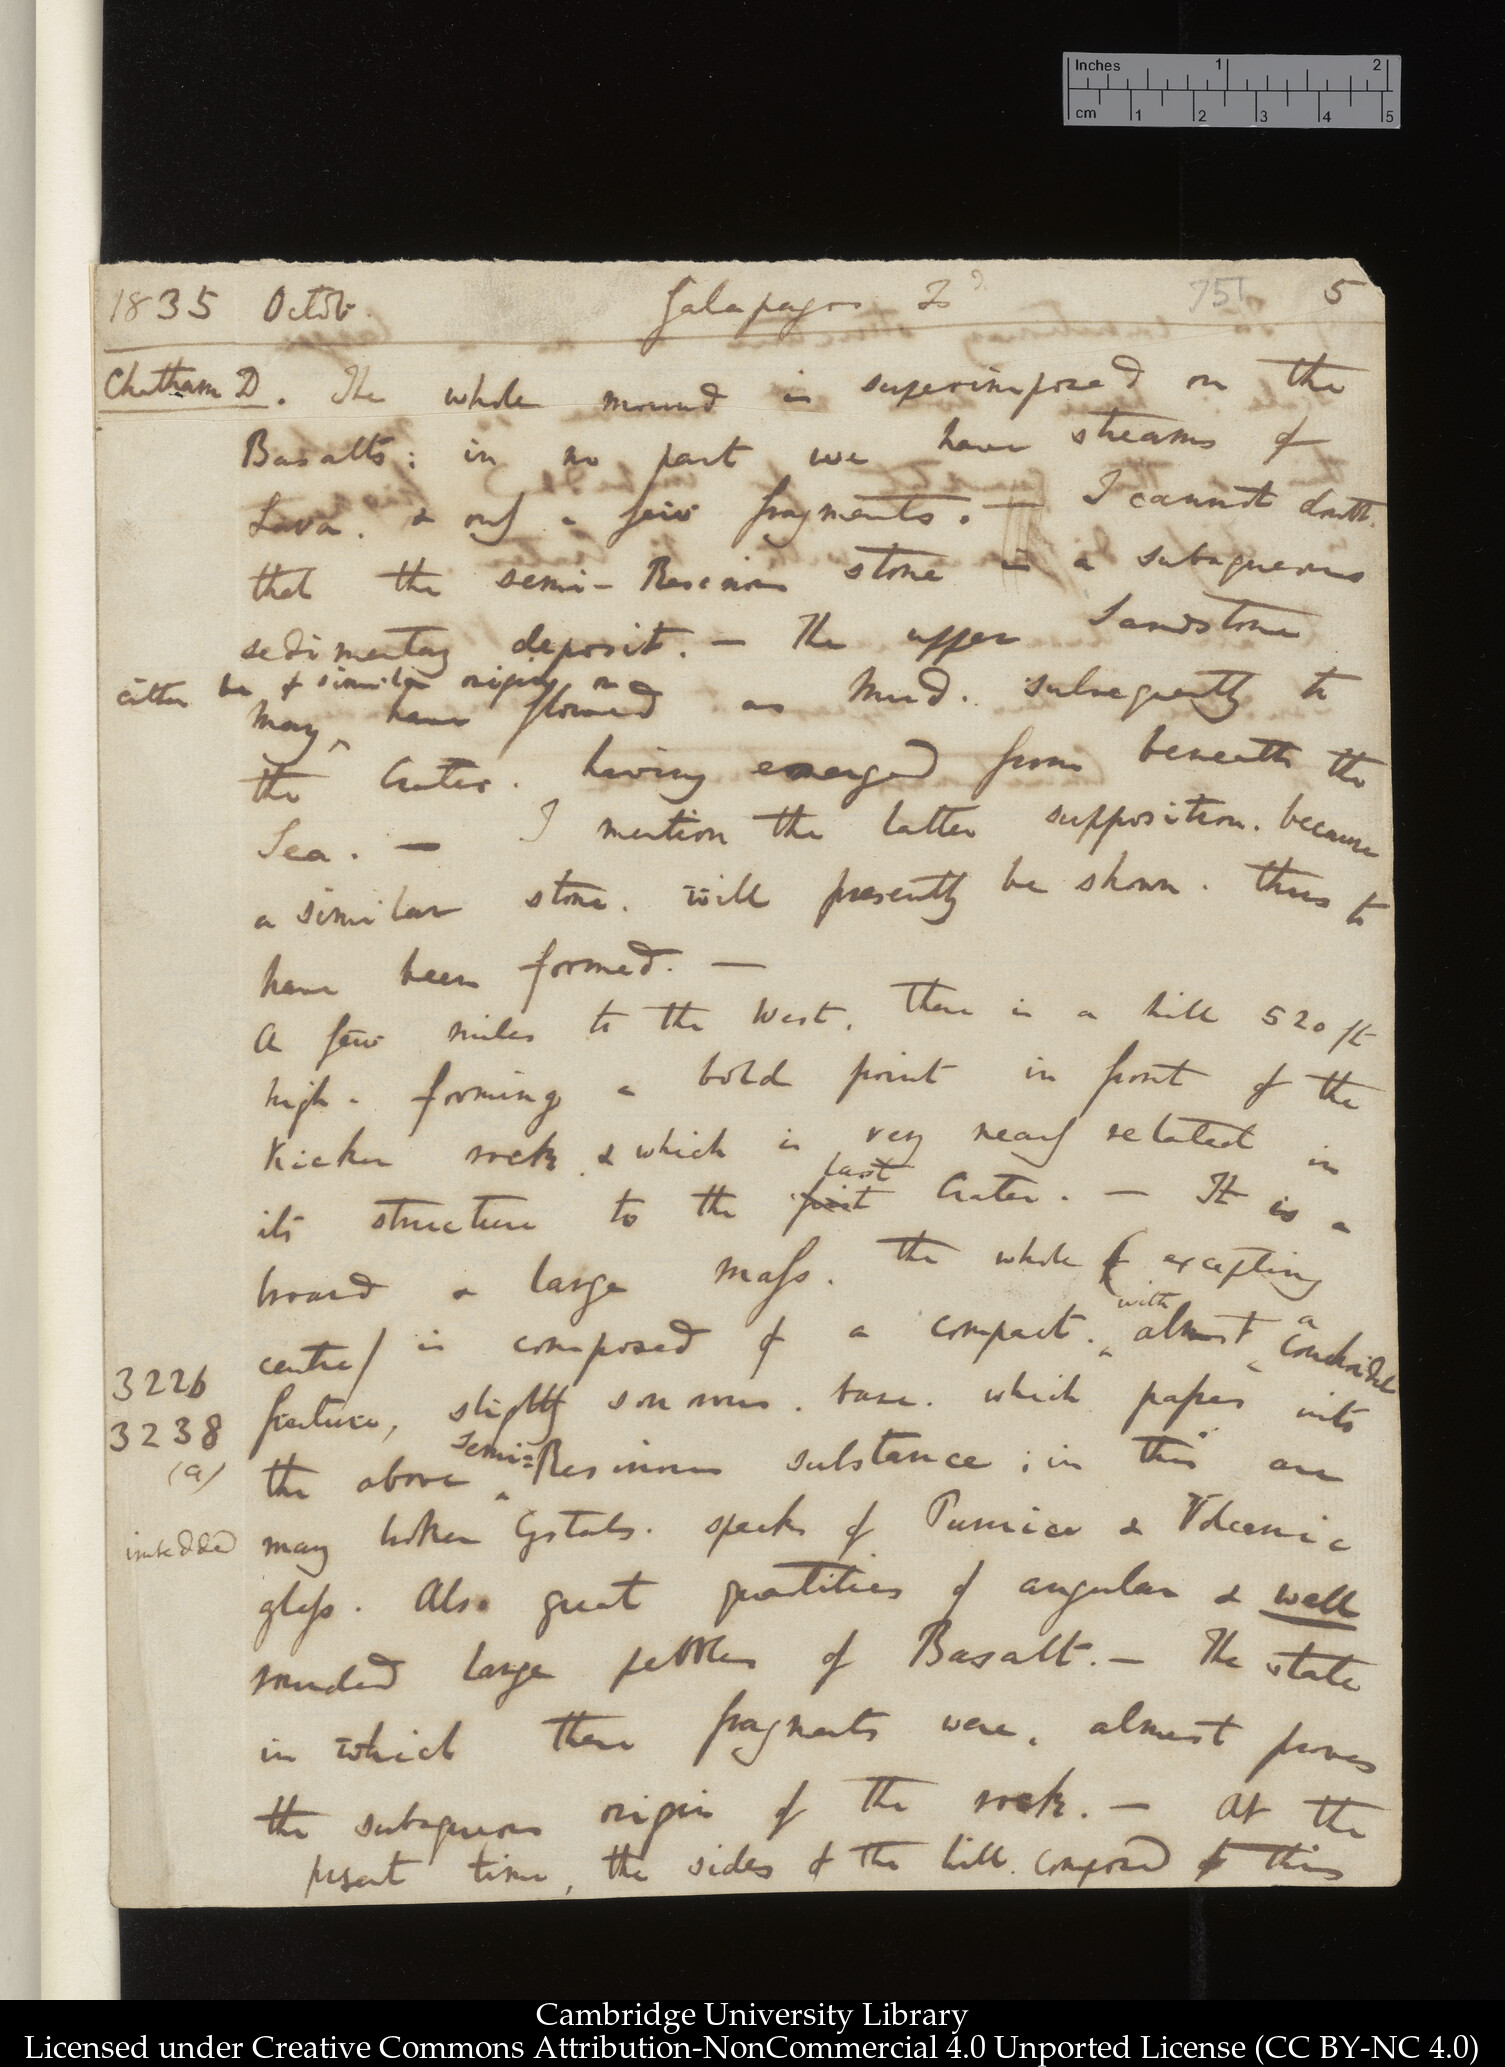 Inches 1 2
cm 1 2 3 4 5
1835 Octob. Galapagos Is 751 5
Chatham Isd. The whole mound is superimposed on the
Basalts: in no part we have streams of
Lava. & only a few fragments. — I cannot doubt
that the semi-Resinous stone is a subaqueous
sedimentary deposit. — The upper Sandstone
either be of similar origin or
may ^ have flowed as Mud. subsequently to
the Crater. having emerged from beneath the
Sea. — I mention the latter supposition. because
a similar stone. will presently be shown. thus to
have been formed. —
A few miles to the West. there is a hill 520 ft
high. forming a bold point in front of the
Kicker rock & which is very nearly related in
last
its structure to the first Crater. — It is a
broard & large mass. the whole (excepting
with a
centre) is composed of a compact. ^ almost ^ conchoidal
3226
3238
(a)
fracture, slightly sonorous. base. which passes into
semi=
the above ^ Resinous substance; in this are
imbedded may broken Crystals. specks of Pumice & Volcanic
glass. Also great quantities of angular & well
rounded large pebbles of Basalt. — The state
in which these fragments were. almost proves
the subaqueous origin of the rock. — At the
present time, the sides of the hill. composed of this
Cambridge University Library
Licensed under Creative Commons Attribution-NonCommercial 4.0 Unported License (CC BY-NC 4.0)